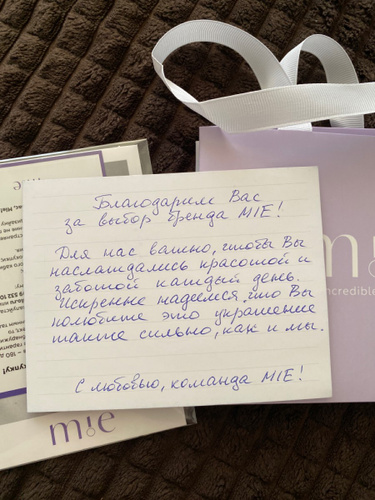 Благодарим Вас
за выбор бренда MIE!
Для нас важно, чтобы Вы
наслаждались красотой и
заботой каждый день.
Искренне надеемся, что Вы
полюбите это украшение
также сильно, как и мы.
С любовью, команда MIE!
mie
incredible